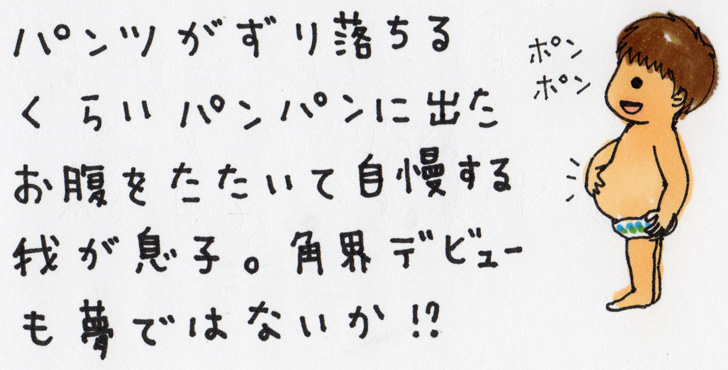 パンツがずり落ちる
くらいパンパンに出た
お腹をたたいて自慢する
我が息子。角界デビュー
も夢ではないか!?
ポン
ポン